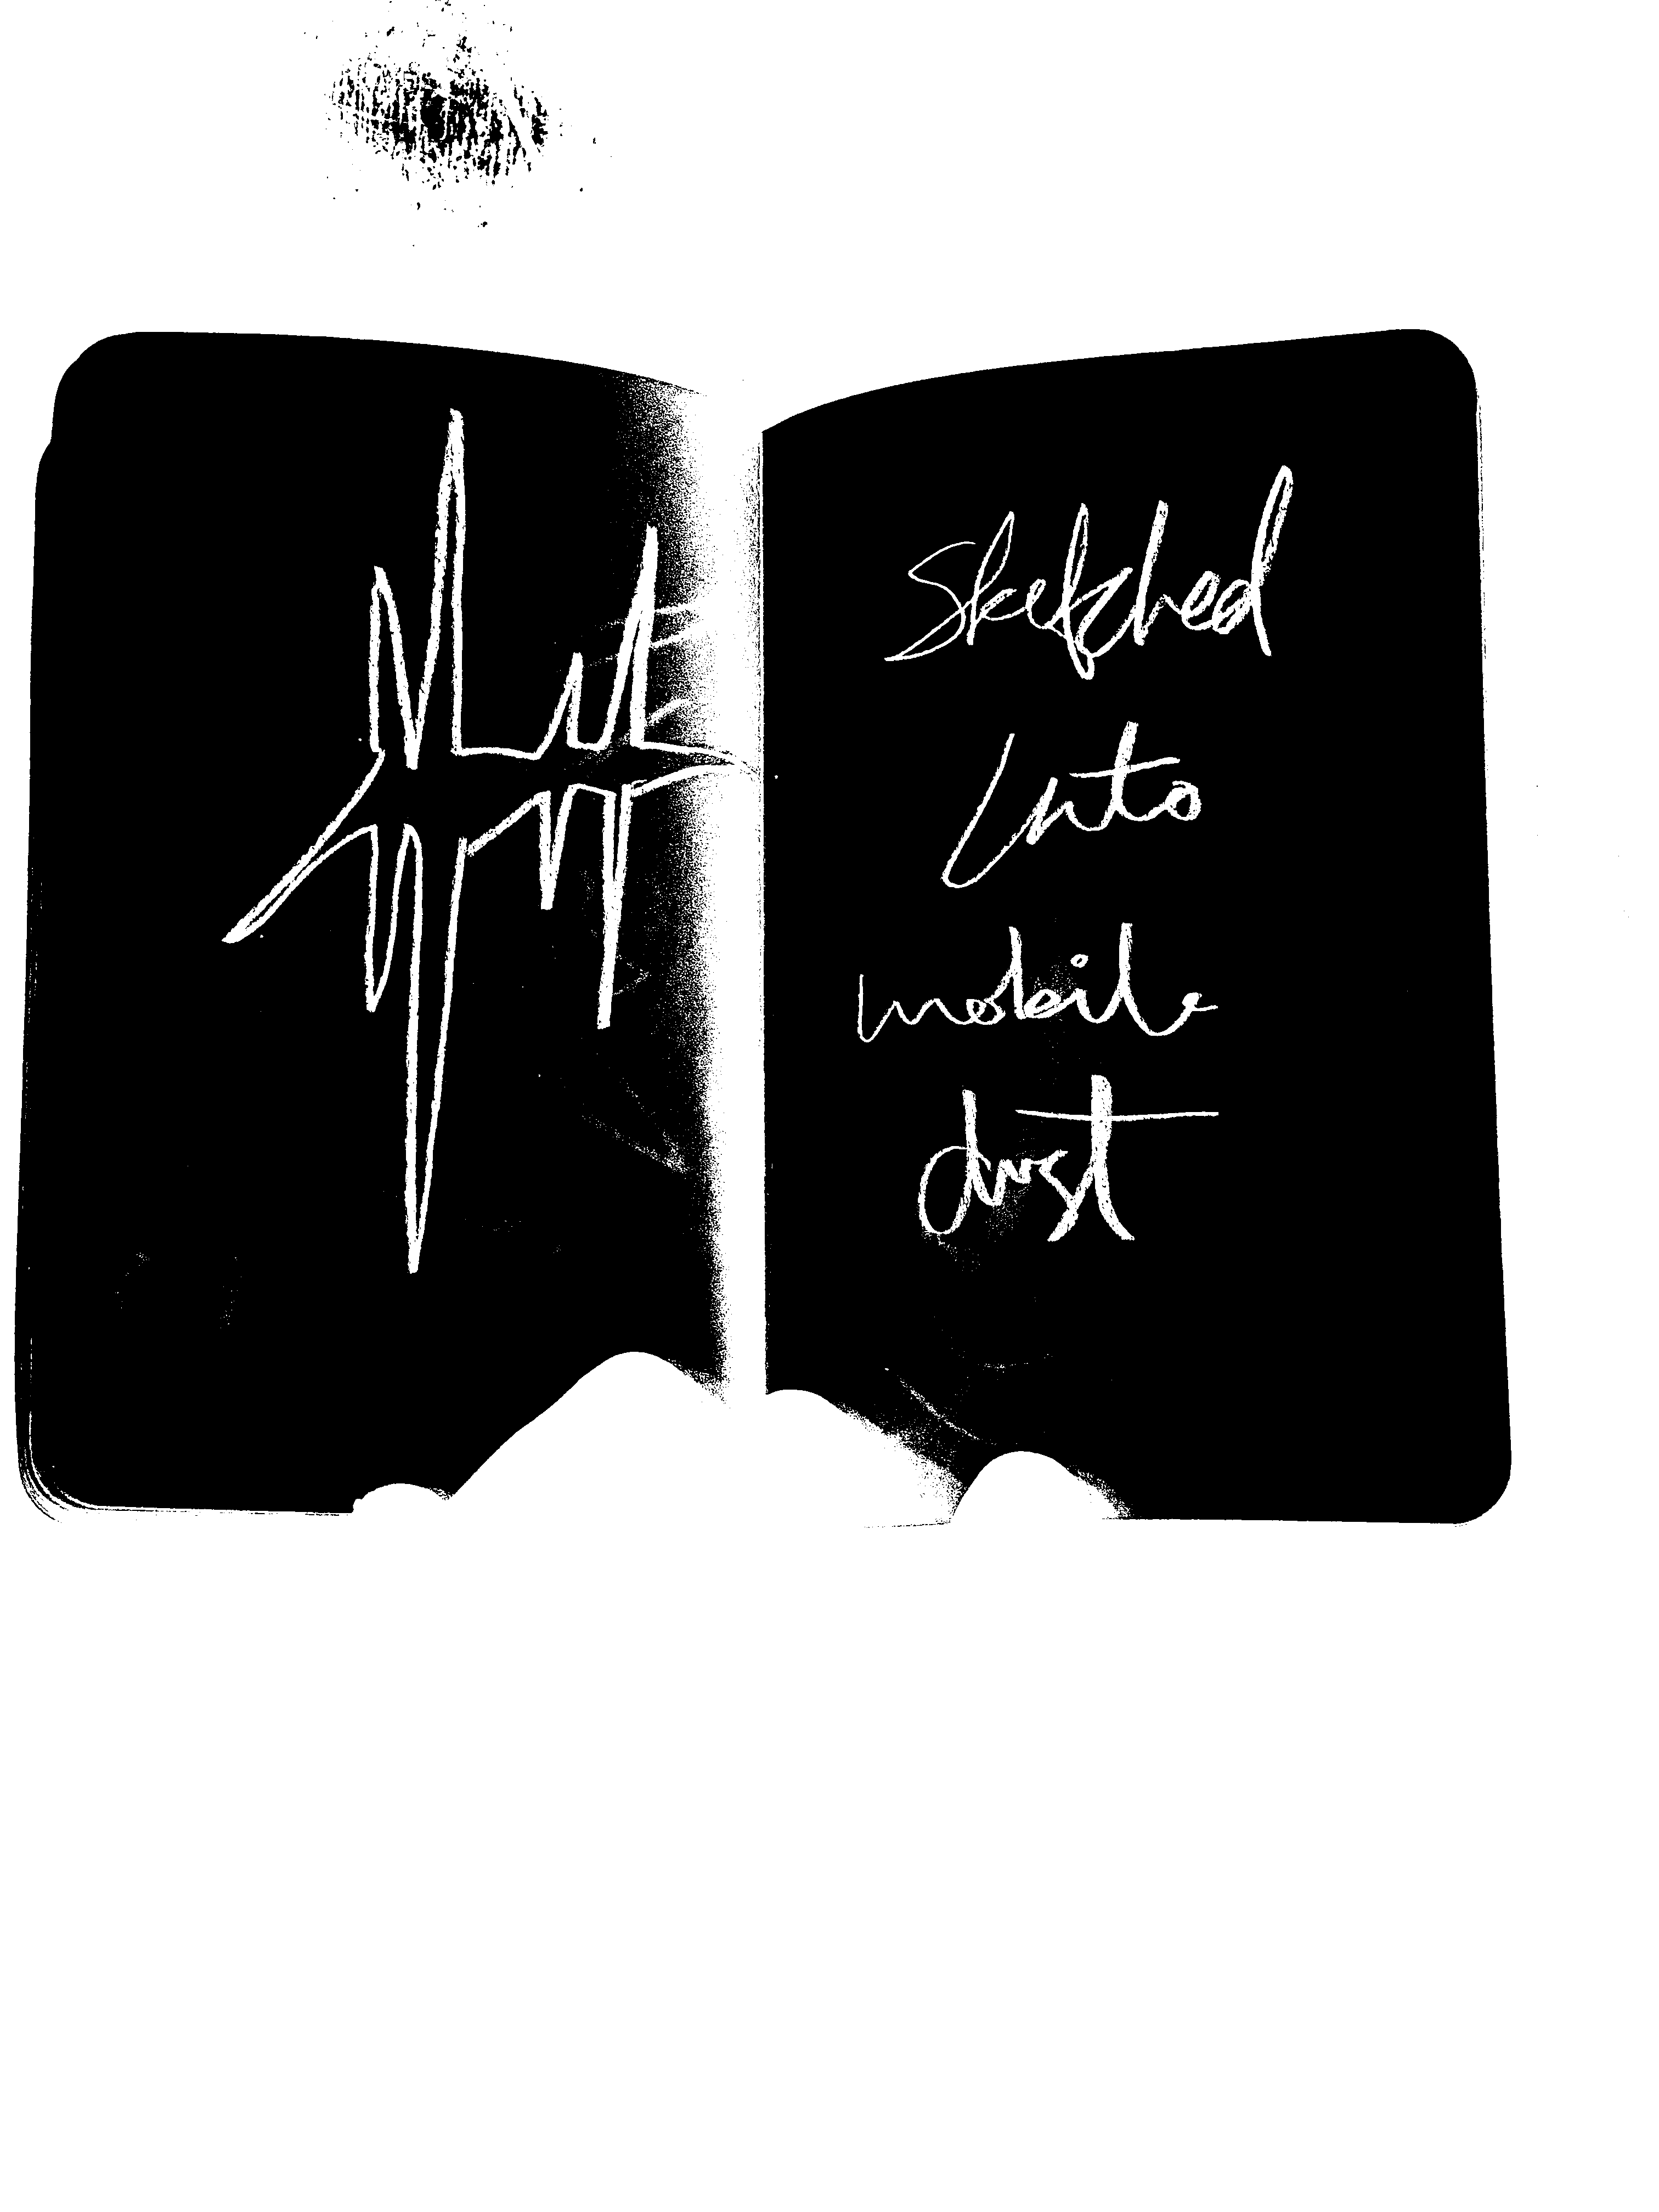 Sketched
Into
mobile
dust